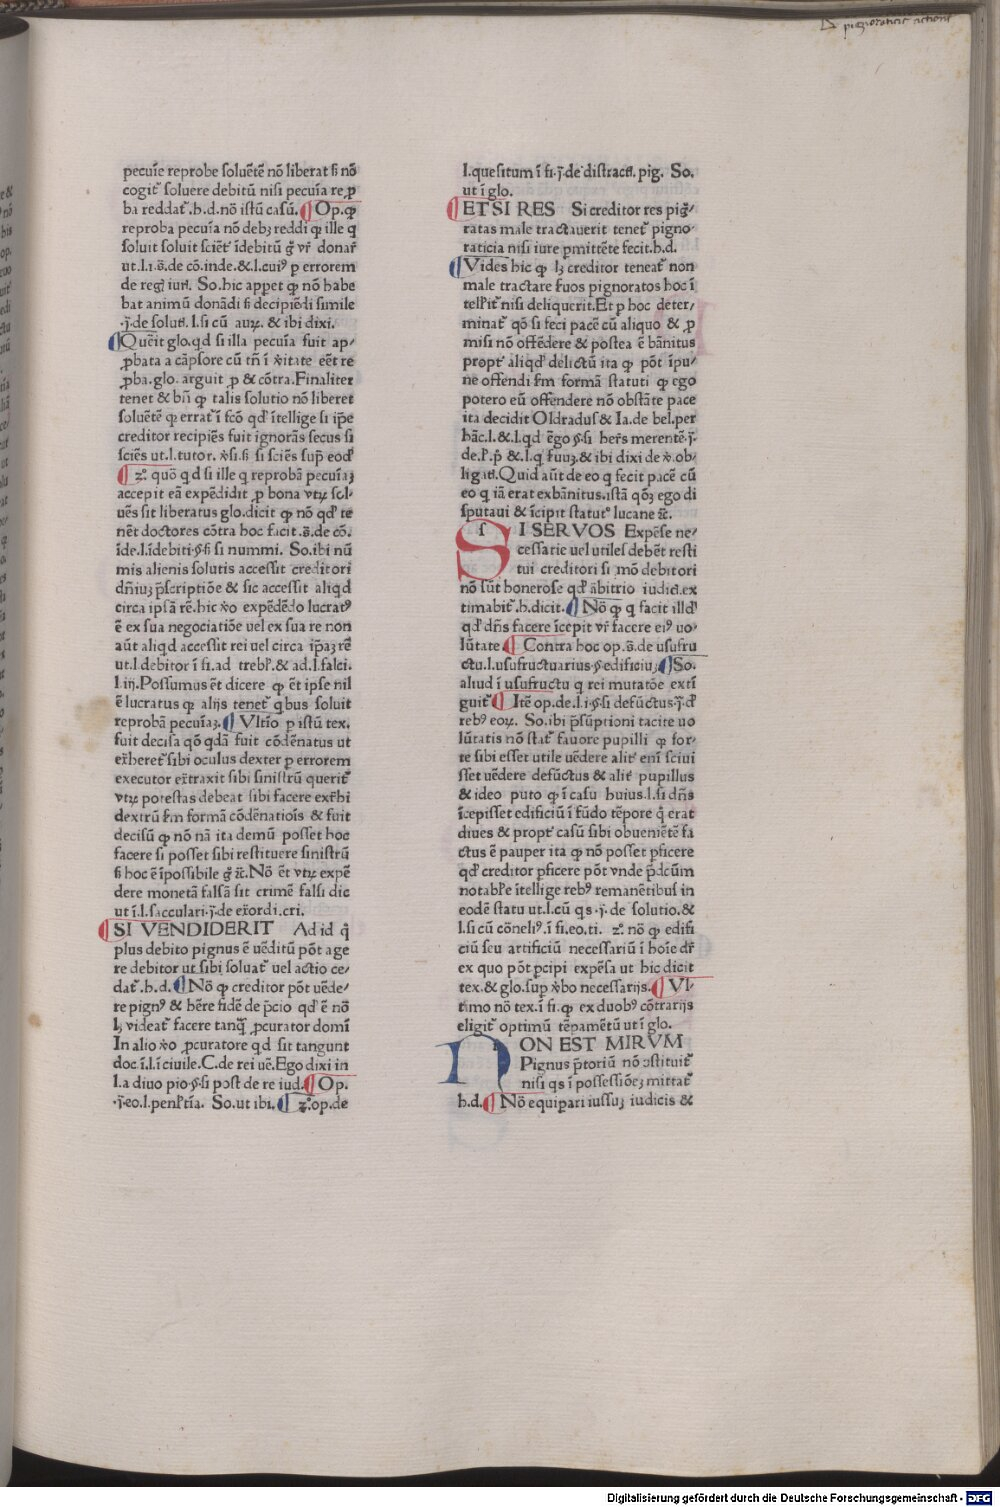 pignoraticie actione
pecuīe reprobe soluētē nō liberat s̄ nō
cogit᷑ soluere debitū nisi pecuīa re ꝓ
ba reddat᷑.h.d.nō istū casū. Op.ꝙ
reproba pecuīa nō debꝫ reddi ꝙ ille q̄
soluit soluit sciēt᷑ īdebitū g̊ vr̄ donar̄
ut.l.i.s̄.de cō.inde.&.l.cuiꝰ p errorem
de reg᷑ iur̄. So.hic appet ꝙ nō habe
bat animū donādi s̄ decipiēdi simile
.j̄.de solut̄.l.si cū auꝝ.& ibi dixi.
Querit glo.qd si illa pecuīa fuit ap⸗
ꝓbata a cāpsore cū tn̄ ī v̄itate eēt re
ꝓba.glo.arguit ꝓ & cōtra.Finaliter
tenet & bn̄ ꝙ talis solutio nō liberet
soluētē ꝙ errat᷑ ī fcō qd' ītellige si ip̄e
creditor recipiēs fuit ignorās secus si
sciēs ut.l.tutor.v̄si.s̄ si sciēs sup̄ eod'
zº quō qd si ille q reprobā pecuīaꝫ
accepit eā expēdidit ꝓ bona vtꝝ sol⸗
uēs sit liberatus glo.dicit ꝙ nō qd' te
nēt doctores cōtra hoc facit.s̄.de cō.
īde.l.īdebiti.§.s̄ si nummi. So.ibi nū
mis alienis solutis accessit creditori
dn̄iuꝫ p̄scriptiōe & sic accessit aliqd
circa ipsā rē.hic v̄o expēdēdo lucratꝰ
ē ex sua negociatiōe vel ex sua re non
aūt aliqd accessit rei uel circa ip̄aꝫ rē
ut.l.debitor ī fi.ad trebl̄.& ad.l.falci.
l.iij.Possumus ēt dicere ꝙ ēt ipse nil
ē lucratus ꝙ alijs tenet᷑ q̄bus soluit
reprobā pecuīaꝫ. Vltīo p istū tex.
fuit decisa qō qdā fuit cōdēnatus ut
ex̄heret᷑ sibi oculus dexter p errorem
executor ex̄traxit sibi sinistrū querit᷑
vtꝝ potestas debeat sibi facere ext̄hi
dextrū s̄m formā cōdēnatiois & fuit
decisū ꝙ nō nā ita demū posset hoc
facere si posset sibi restituere sinistrū
s̄ hoc ē īpossibile g̊ ⁊c.Nō ēt vtꝝ expē
dere monetā falsā sit crimē falsi dic
ut ī.l.sacculari.j̄.de ex̄ordi.cri.
SI VENDIDERIT Ad id q̄
plus debito pignus ē uēditū pōt age
re debitor ut sibi soluat᷑ uel actio ce⸗
dat᷑.h.d. Nō ꝙ creditor pōt uēde⸗
re pignꝰ & hēre fidē de p̄cio qd' ē nō
lꝫ videat᷑ facere tanq̄ ꝓcurator domī
In alio v̄o ꝓcuratore qd sit tangunt
doc.ī.l.ī ciuile.C.de rei uē.Ego dixi in
l.a diuo pio.§.si post de re iud. Op.
.j̄.eo.l.penl̄tīa. So.ut ibi. zº.op.de
l.quesitum ī fi.j̄.de distract̄. pig. So.
ut ī glo.
ETSI RES Si creditor res pig̊⸗
ratas male tractauerit tenet᷑ pigno⸗
raticia nisi iure ꝑmittēte fecit.h.d.
Vides hic ꝙ lꝫ creditor teneat᷑ non
male tractare seruos pignoratos hoc ī
tell'it᷑ nisi deliquerit.Et p hoc deter⸗
minat᷑ qō si feci pacē cū aliquo & ꝓ
misi nō offēdere & postea ē bānitus
propt᷑ aliqd' delictū ita ꝙ pōt īpu⸗
ne offendi s̄m formā statuti ꝙ ego
potero eū offendere nō obstāte pace
ita decidit Oldradus & Ia.de bel.per
hāc.l.& l.qd ēgo.§.si her̄s merentē.j̄.
de.l'.p̄ & l.q̄ suuꝫ.& ibi dixi de v̄.ob⸗
ligat̄.Quid aūt de eo q fecit pacē cū
eo q iā erat exbānitus.istā qōꝫ ego di
sputaui & īcipit statutº lucane ⁊c.
SI SERVOS Expēse ne⸗
cessarie uel utiles debēt resti
tui creditori si mō debitori
nō sūt honerose qd' ābitrio iudic̄.ex
timabit᷑.h.dicit. Nō ꝙ q facit illd'
qd' dn̄s facere īcepit vr̄ facere eiꝰ uo⸗
lūtate. Contra hoc op.s̄.de usufru
ctu.l.usufructuarius.§.edificiuꝫ. So.
aliud ī usufructu q rei mutatōe extī
guit᷑. Itē op.de.l.i.§.si defūctus.j̄.d'
rebꝰ eoꝝ. So.ibi p̄sūptioni tacite uo
lūtatis nō stat᷑ fauore pupilli ꝙ for⸗
te sibi esset utile uēdere alit᷑ enī sciui
sset uēdere defūctus & alit᷑ pupillus
& ideo puto ꝙ ī casu huius.l.si dn̄s
īcepisset edificiū ī fūdo tēpore q̄ erat
diues & propt᷑ casū sibi obueniētē fa
ctus ē pauper ita ꝙ nō posset ꝑficere
qd' creditor ꝑficere pōt vnde p̄dc̄um
notabl'e ītellige rebꝰ remanētibus in
eodē statu ut.l.cū qs.j̄.de solutio.&
l.si cū cōnelꝰ.ī fi.eo.ti. zº nō ꝙ edifi
ciū seu artificiū necessariū ī hoīe dr̄
ex quo pōt ꝑcipi expēsa ut hic dicit
tex.& glo.sup v̄bo necessarijs. Vl⸗
timo nō tex.ī fi.ꝙ ex duobꝰ cōtrarijs
eligit᷑ optimū tēpamētū ut ī glo.
NON EST MIRVM
Pignus p̄toriū nō ↄstituit᷑
nisi qs ī possessiōeꝫ mittat᷑
h.d. Nō equiꝑari iussuꝫ iudicis &
Digitalisierung gefördert durch die Deutsche Forschungsgemeinschaft - DFG